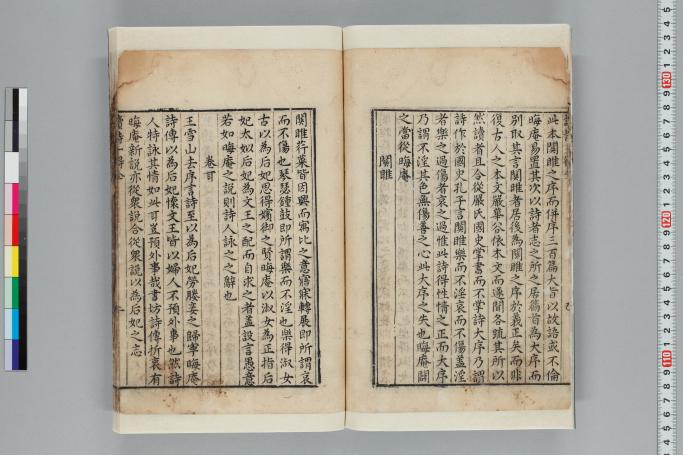 此本關雎之序而併序三百篇大旨以故語或不倫
晦庵易置其次以詩者志之所之居篇首為大序而
別取其言關雎者居後為關雎之序於義正矣而非
復古人之本文嚴華谷依本文而遂聞各疏其所以
然讀者且合從嚴氏國史掌書而不掌詩大序乃謂
詩作於國史孔子言關雎樂而不淫哀而不傷蓋淫
者樂之過傷者哀之過惟此詩得性情之正而大序
乃謂不淫其色無傷善之心此大序之失也晦庵闢
之當從晦庵
關雎
關雎荇菜皆因興而寓比之意寤寐轉展即所謂哀
而不傷也琴瑟鐘鼓即所謂樂而不淫也樂得淑女
古以為后妃思得嬪御之賢晦庵以淑女為正指后
妃太姒后妃為文王之配而自求之者蓋設言愚意
若如晦庵之說則詩人詠之之辭也
卷耳
王雪山去序言詩至以為后妃勞媵妾之歸寧晦庵
詩傳以為后妃懷文王皆以婦人不預外事也然詩
人特詠其情如此耳豈預外事哉書坊詩傳折衷有
晦庵新說亦從衆說合從衆說以為后妃之志